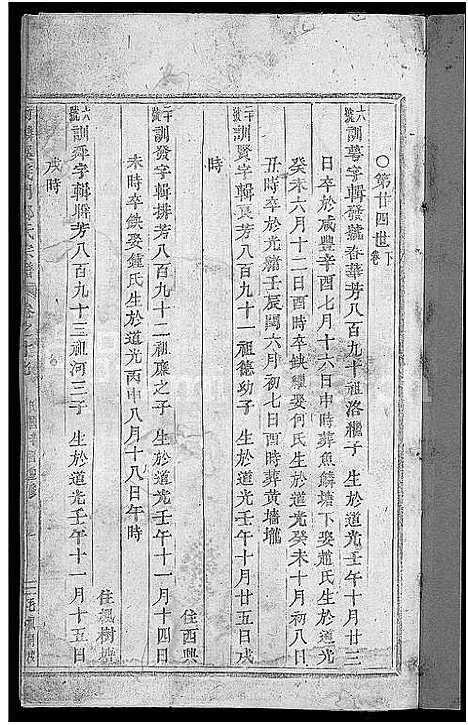 ○第廿四世卷下
六號訓萼字輯發號春華芳八百九十祖洛樾子 生於道光壬午十月廿三
日卒於咸豐辛酉七月十六日申時葬魚鱗塘下娶趙氏生於道光
癸未六月十二日酉時卒缺繼娶何氏生於道光癸未十月初八日
丑時卒於光緒壬辰閏六月初七日酉時葬黃墻壠
二十號訓賢字輯良芳八百九十一祖德功子 生於道光壬午十月廿五日戌
時
住西興
二十號訓發字輯排芳八百九十二祖廉之子 生於道光壬午十一月十四日
未時卒缺娶鍾氏生於道光丙申八月十八日午時
住楓樹塘
六號訓舜字輯勝芳八百九十三祖河三子 生於道光壬午十一月十五日
戌時